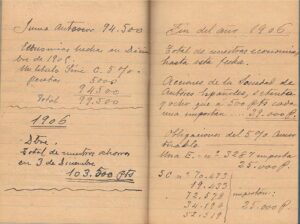 Suma Anterior 94.500
Economias hechas en Diciem
bre de 1905:
Un titulo Serie C. 5 %
pesetas 5000
94500
Total 99.500
1906
Dbre.
Total de nuestros ahorros
en 3 de Diciembre
103.500 pts
Fin del año 1906
Total de nuestras economias
hasta esta fecha.
Acciones de la Sociedad de
Autores Españoles, setenta
y ocho que a 500 pts cada
una importan ... 39.000 pts.
Obligaciones del 5 % Amor
tizable
Una E. nº 3287 importa
25.000 pts.
5 C. nº 70.433
19.433
72.578
importan:
25.000 pts.